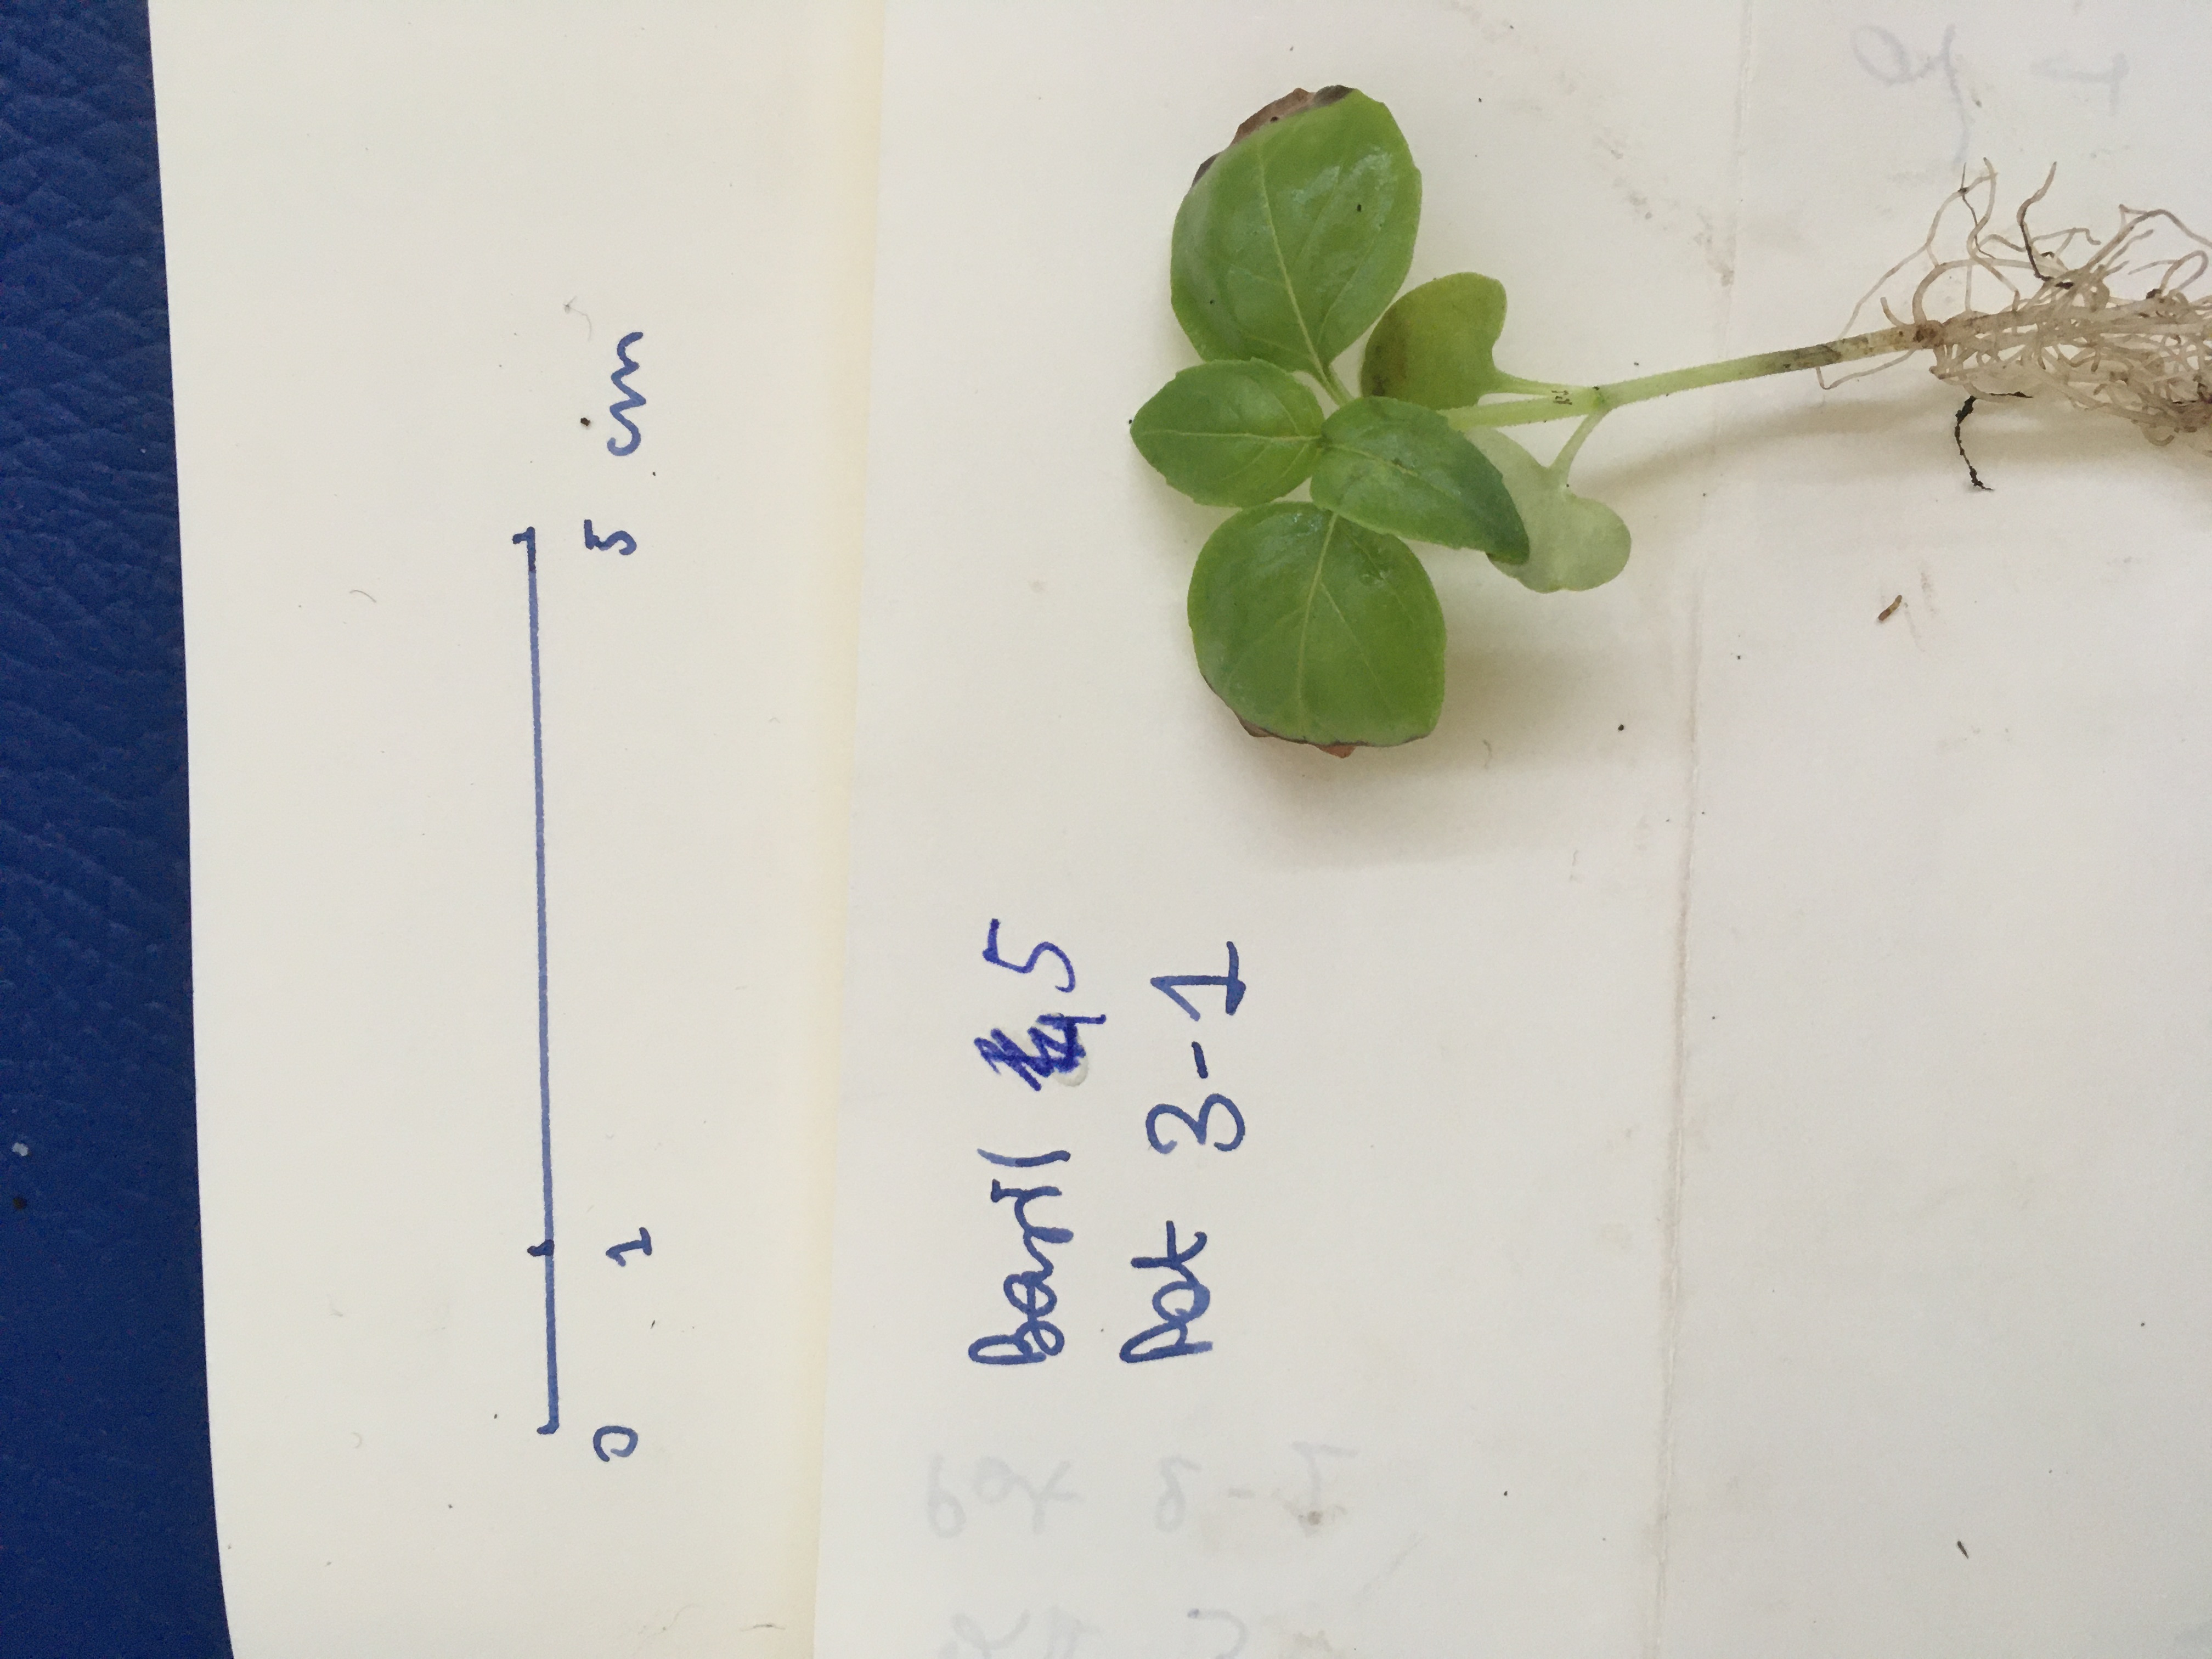 0 1 5 cm
Basil 5
Pot 3-1